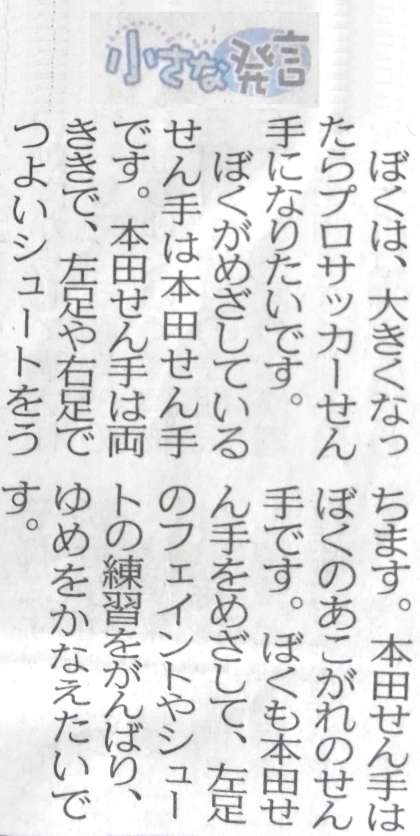 小さな発言
ぼくは、大きくなっ
たらプロサッカーせん
手になりたいです。
ぼくがめざしている
せん手は本田せん手
です。本田せん手は両
ききで、左足や右足で
つよいシュートをう
ちます。本田せん手は
ぼくのあこがれのせん
手です。ぼくも本田せ
ん手をめざして、左足
のフェイントやシュー
トの練習をがんばり、
ゆめをかなえたいで
す。